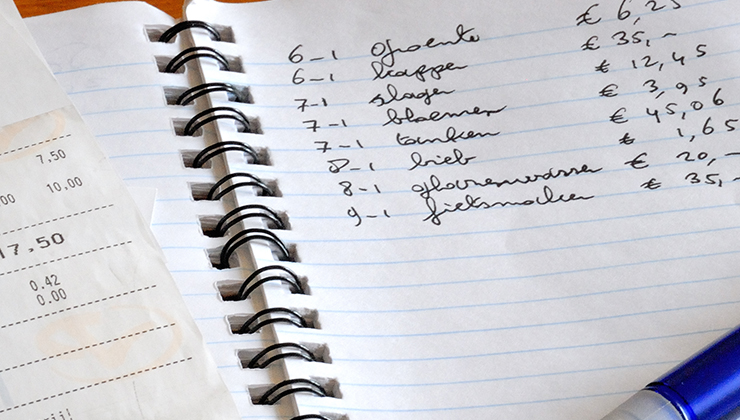 7,50
00 10,00
17,50
0.42
0.00
6-1 groente € 6,25
6-1 kapper € 35,-
7-1 slager € 12,45
7-1 bloemen € 3,95
7-1 tanken € 45,06
8-1 € 1,65
8-1 glazenwasser € 20,-
9-1 fietsmaken € 35,-